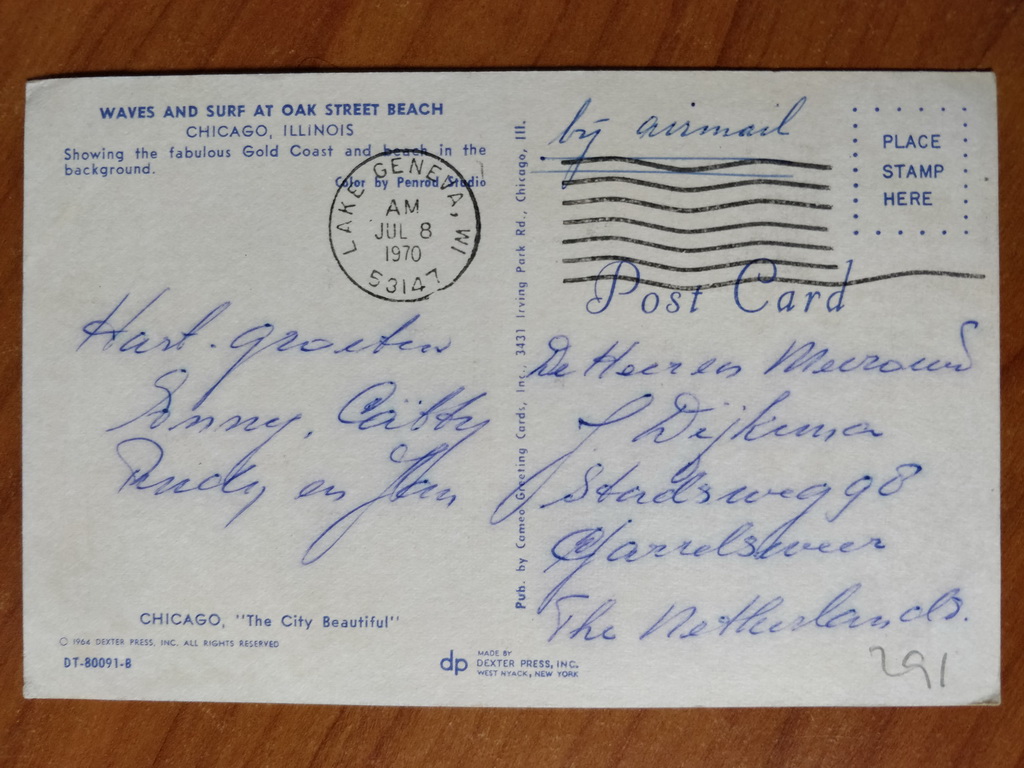 WAVES AND SURF AT OAK STREET BEACH
CHICAGO, ILLINOIS
Showing the fabulous Gold Coast and beach in the
background.
Color by Penrod Studio
LAKE GENEVA, WI
AM
JUL 8
1970
53147
Hart. groeten
Sonny, Cathy
Rudy en Jan
CHICAGO, "The City Beautiful"
© 1964 DEXTER PRESS, INC. ALL RIGHTS RESERVED
DT-80091-B
dp
MADE BY
DEXTER PRESS, INC.
WEST NYACK, NEW YORK
Pub. by Cameo Greeting Cards, Inc., 3431 Irving Park Rd., Chicago, Ill.
by airmail
PLACE
STAMP
HERE
Post Card
De Heer en Mevrouw
J Dijkema
Stadsweg 98
Garrelsweer
The Netherlands.
291